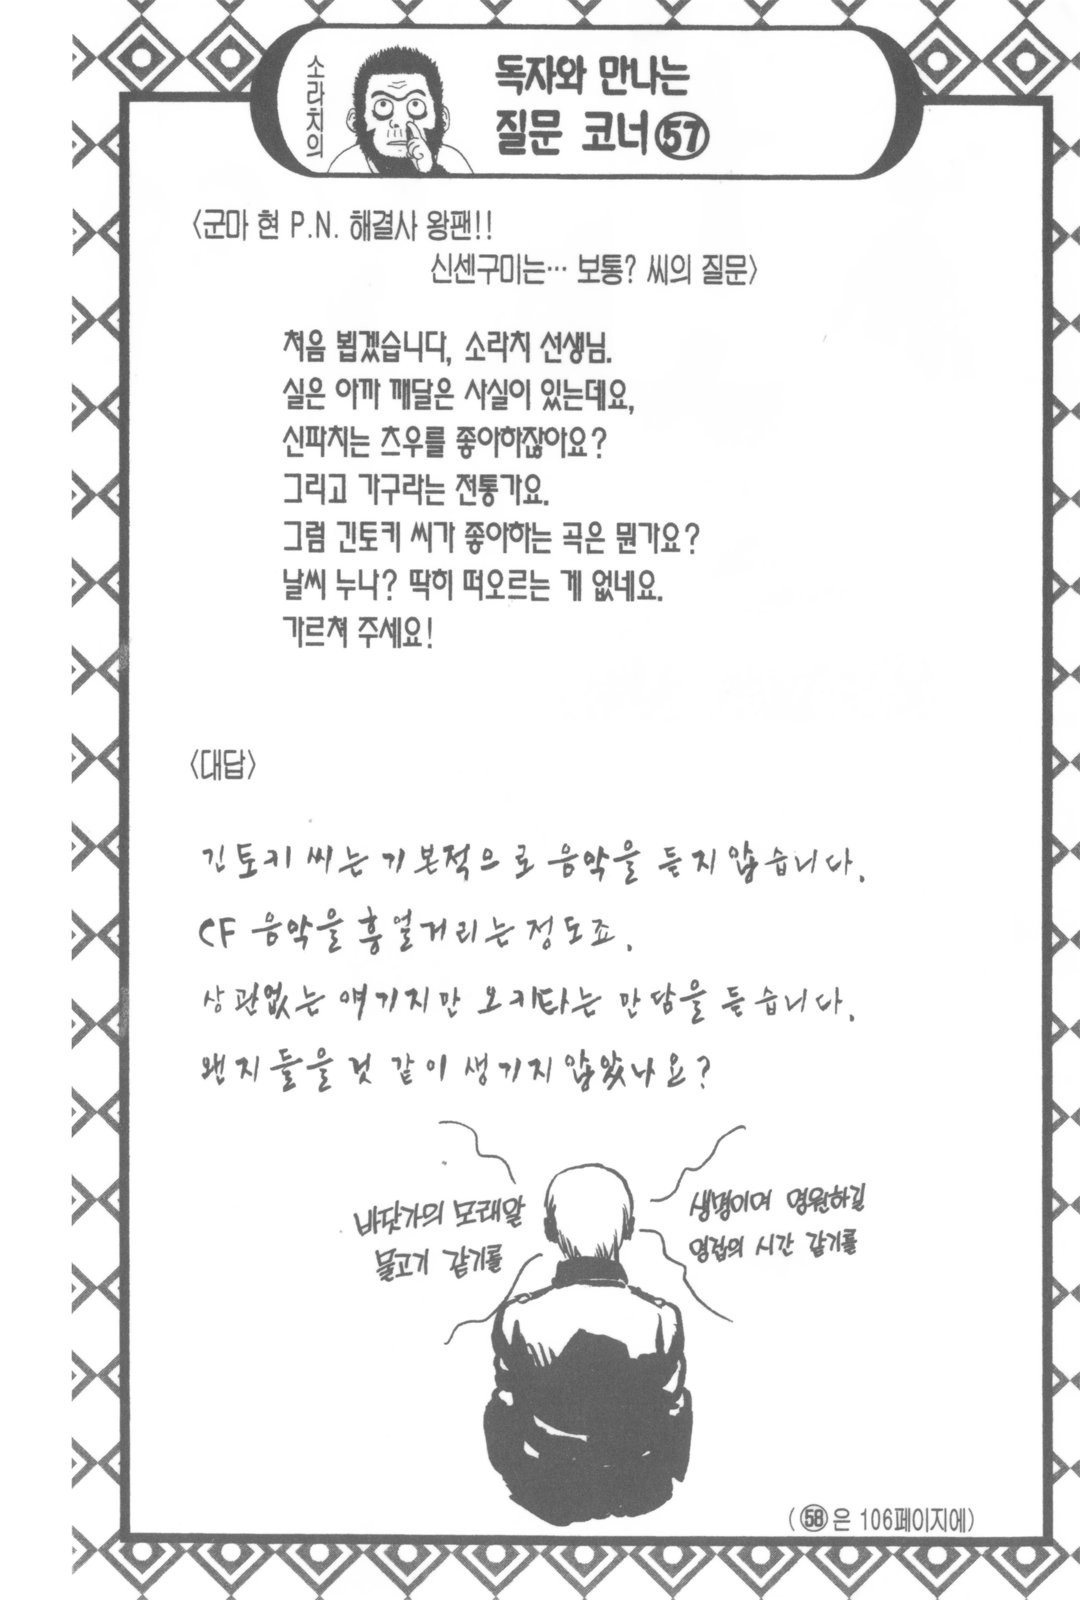 소라치의
독자와 만나는
질문 코너 57
〈군마 현 P.N. 해결사 왕팬!!
신센구미는… 보통? 씨의 질문〉
처음 뵙겠습니다, 소라치 선생님.
실은 아까 깨달은 사실이 있는데요,
신파치는 츠우를 좋아하잖아요?
그리고 가구라는 전통가요.
그럼 긴토키 씨가 좋아하는 곡은 뭔가요?
날씨 누나? 딱히 떠오르는 게 없네요.
가르쳐 주세요!
〈대답〉
긴토키 씨는 기본적으로 음악을 듣지 않습니다.
CF 음악을 흥얼거리는 정도죠.
상관없는 얘기지만 오키타는 만담을 듣습니다.
왠지 들을 것 같이 생기지 않았나요?
바닷가의 모래알
물고기 같기를
생명이며 영원하길
영겁의 시간 같기를
(58은 106페이지에)